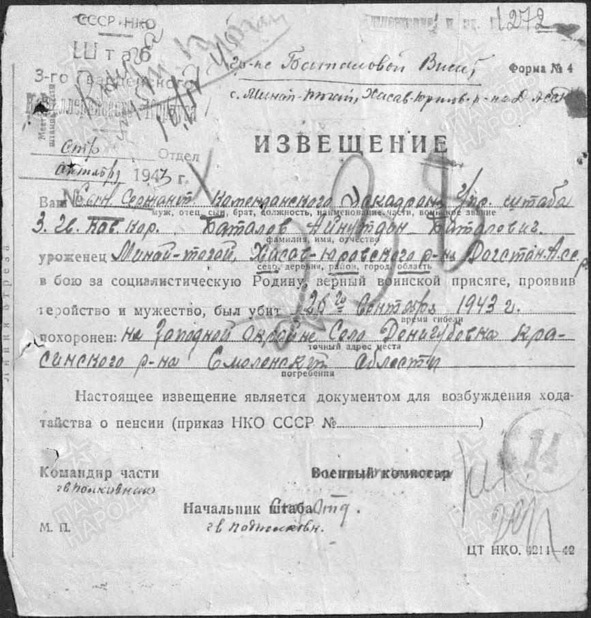 СССР-НКО
Штаб
3-го Гвардейского
1272
Форма № 4
Гр-не Баталовой
с. Минай-тогай, Хасав-Юртовск. р-на
ИЗВЕЩЕНИЕ
Стр. Отдел
октября 1943 г.
Ваш Сын Сержант Комендантского Эскадрона Упр. штаба
муж, отец, сын, брат, должность, наименование части, воинское звание
3. Гв. Кав. Кор. Баталов Айнутдон Баталович
фамилия, имя, отчество
уроженец Минай-тогай, Хасав-юровского р-на Дагстан. А.ссР
село, деревня, район, город, область
в бою за социалистическую Родину, верный воинской присяге, проявив
геройство и мужество, был убит 26 го Сентября 1943 г.
время гибели
похоронен: на Западной Окраине Село Донигуровка Кра-
точный адрес места
синского р-на Смоленской Области
погребения
Настоящее извещение является документом для возбуждения хода-
тайства о пенсии (приказ НКО СССР №
Командир части
гв полковник
Военный комиссар
Начальник штаба
гв подполковн.
М. П.
14
ЦТ НКО. 4214—42
Линия отреза